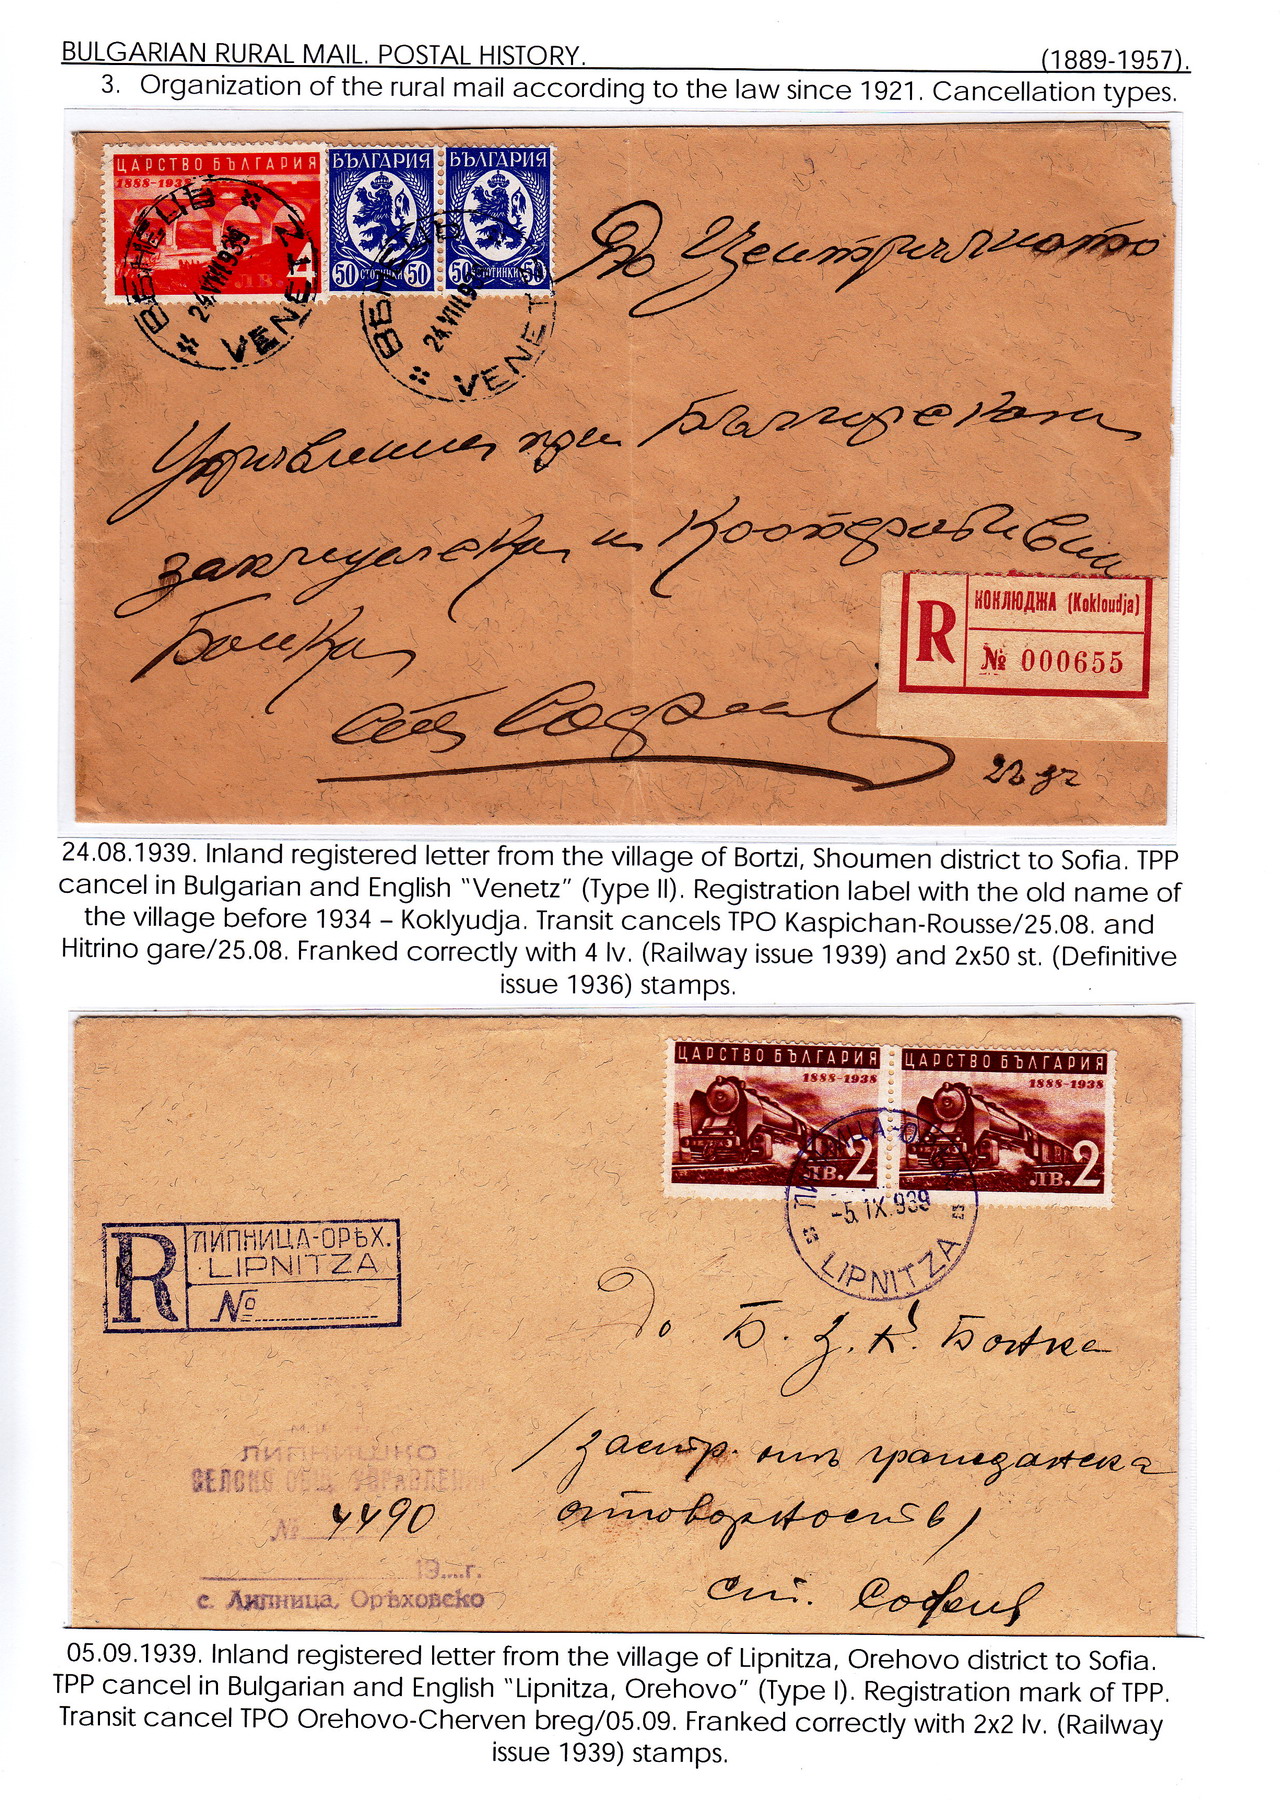 BULGARIAN RURAL MAIL. POSTAL HISTORY. (1889-1957).
3. Organization of the rural mail according to the law since 1921. Cancellation types.
ЦАРСТВО БЪЛГАРИЯ
1888-1938
4
ЛВ.
БЪЛГАРИЯ
50 СТОТИНКИ 50
БЪЛГАРИЯ
50 СТОТИНКИ 50
ВЕНЕЦЪ
24.VIII.939
VENETZ
ВЕНЕЦЪ
24.VIII.939
VENETZ
До Централното
Управление при Българска
земеделска и Кооперативна
Банка
гр. София
R
КОКЛЮДЖА (Kokloudja)
№ 000655
22 gr
24.08.1939. Inland registered letter from the village of Bortzi, Shoumen district to Sofia. TPP
cancel in Bulgarian and English “Venetz” (Type II). Registration label with the old name of
the village before 1934 – Koklyudja. Transit cancels TPO Kaspichan-Rousse/25.08. and
Hitrino gare/25.08. Franked correctly with 4 lv. (Railway issue 1939) and 2x50 st. (Definitive
issue 1936) stamps.
ЦАРСТВО БЪЛГАРИЯ
1888-1938
ЛВ. 2
ЦАРСТВО БЪЛГАРИЯ
1888-1938
ЛВ. 2
ЛИПНИЦА-ОРѢХ.
-5.IX.939
LIPNITZA
R
ЛИПНИЦА-ОРѢХ.
LIPNITZA
№
До Б. З. К. Банка
/застр. отъ гражданска
отговорность/
гр. София
ЛИПНИШКО
СЕЛСКО ОБЩ. УПРАВЛЕНИЕ
№ 4490
19....г.
с. Липница, Орѣховско
05.09.1939. Inland registered letter from the village of Lipnitza, Orehovo district to Sofia.
TPP cancel in Bulgarian and English “Lipnitza, Orehovo” (Type I). Registration mark of TPP.
Transit cancel TPO Orehovo-Cherven breg/05.09. Franked correctly with 2x2 lv. (Railway
issue 1939) stamps.